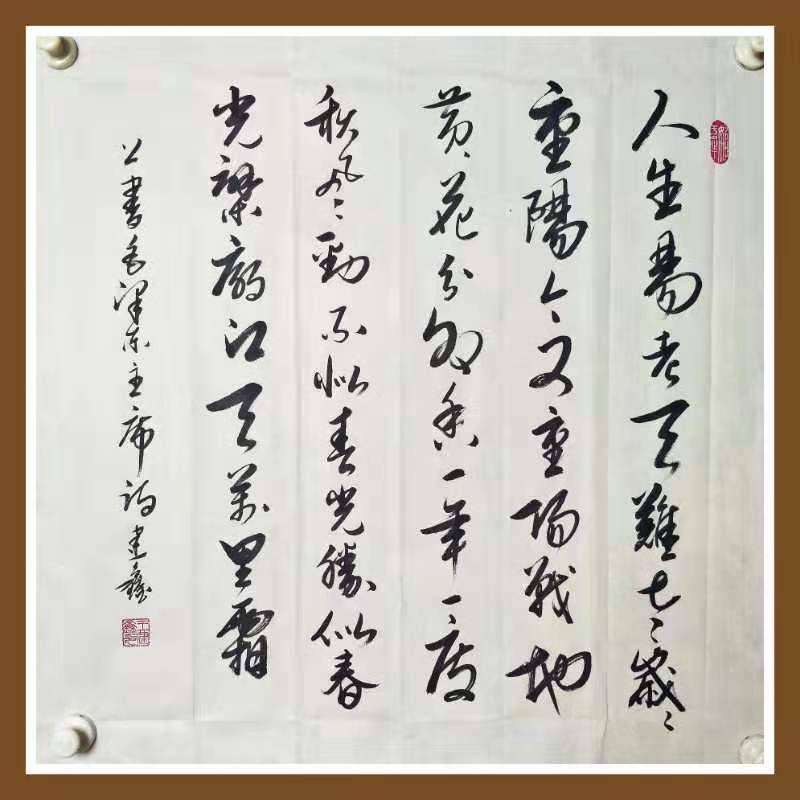 人生易老天難老歲〻
重陽今又重陽戰地
黃花分外香一年一度
秋風勁不似春光勝似春
光寥廓江天萬里霜
書毛澤东主席詩建